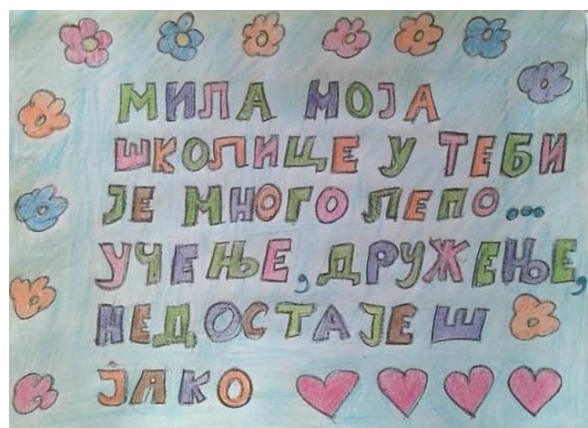 МИЛА МОЈА
ШКОЛИЦЕ У ТЕБИ
ЈЕ МНОГО ЛЕПО...
УЧЕЊЕ, ДРУЖЕЊЕ,
НЕДОСТАЈЕШ
ЈАКО